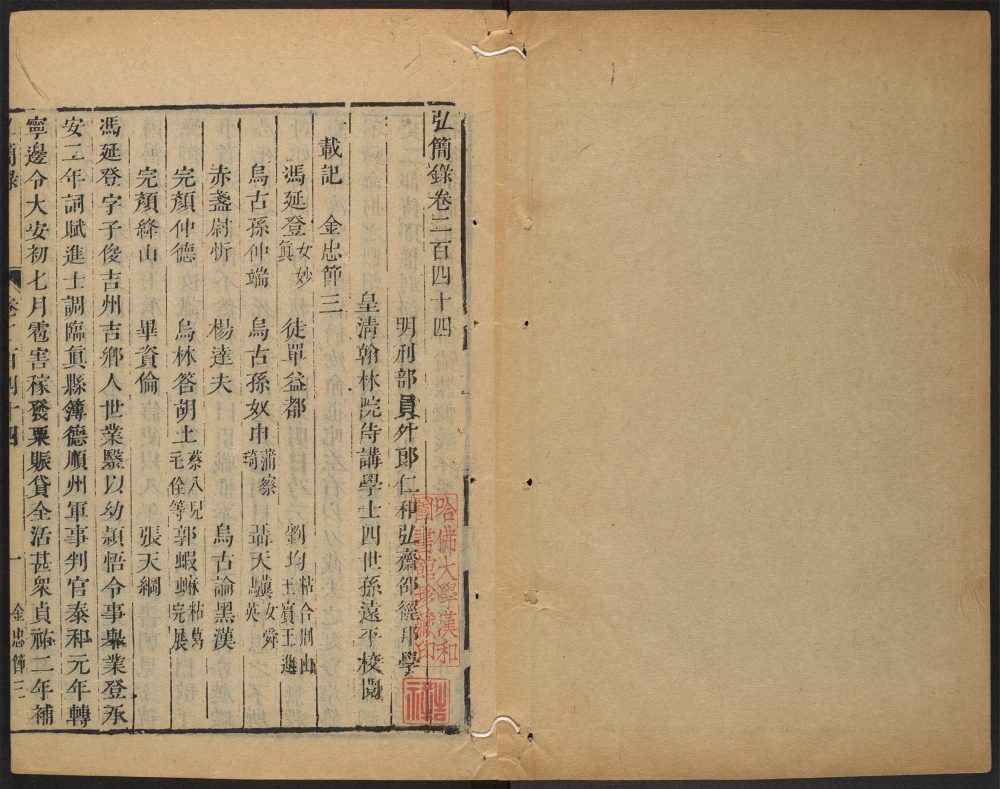 弘簡錄卷二百四十四
明刑部員外郎仁和弘齋邵經邦學
皇清翰林院侍講學士四世孫遠平校閱
載記 金忠節三
馮延登女妙眞 徒單益都 劉均粘合荆山王賓王進
烏古孫仲端 烏古孫奴申蒲察琦 聶天驥女舜英
赤盞尉忻 楊達夫 烏古論黑漢
完顏仲德 烏林答胡土蔡八兒毛佺等 郭蝦䗫粘葛完展
完顏絳山 畢資倫 張天綱
馮延登字子俊吉州吉鄉人世業毉以幼頴悟令事舉業登承
安二年詞賦進士調臨眞縣簿德順州軍事判官泰和元年轉
寧邊令大安初七月雹害稼發粟賑貸全活甚衆貞祐二年補
弘簡錄 卷二百四十四 一 金忠節三
哈佛大學漢和圖書館珍藏印